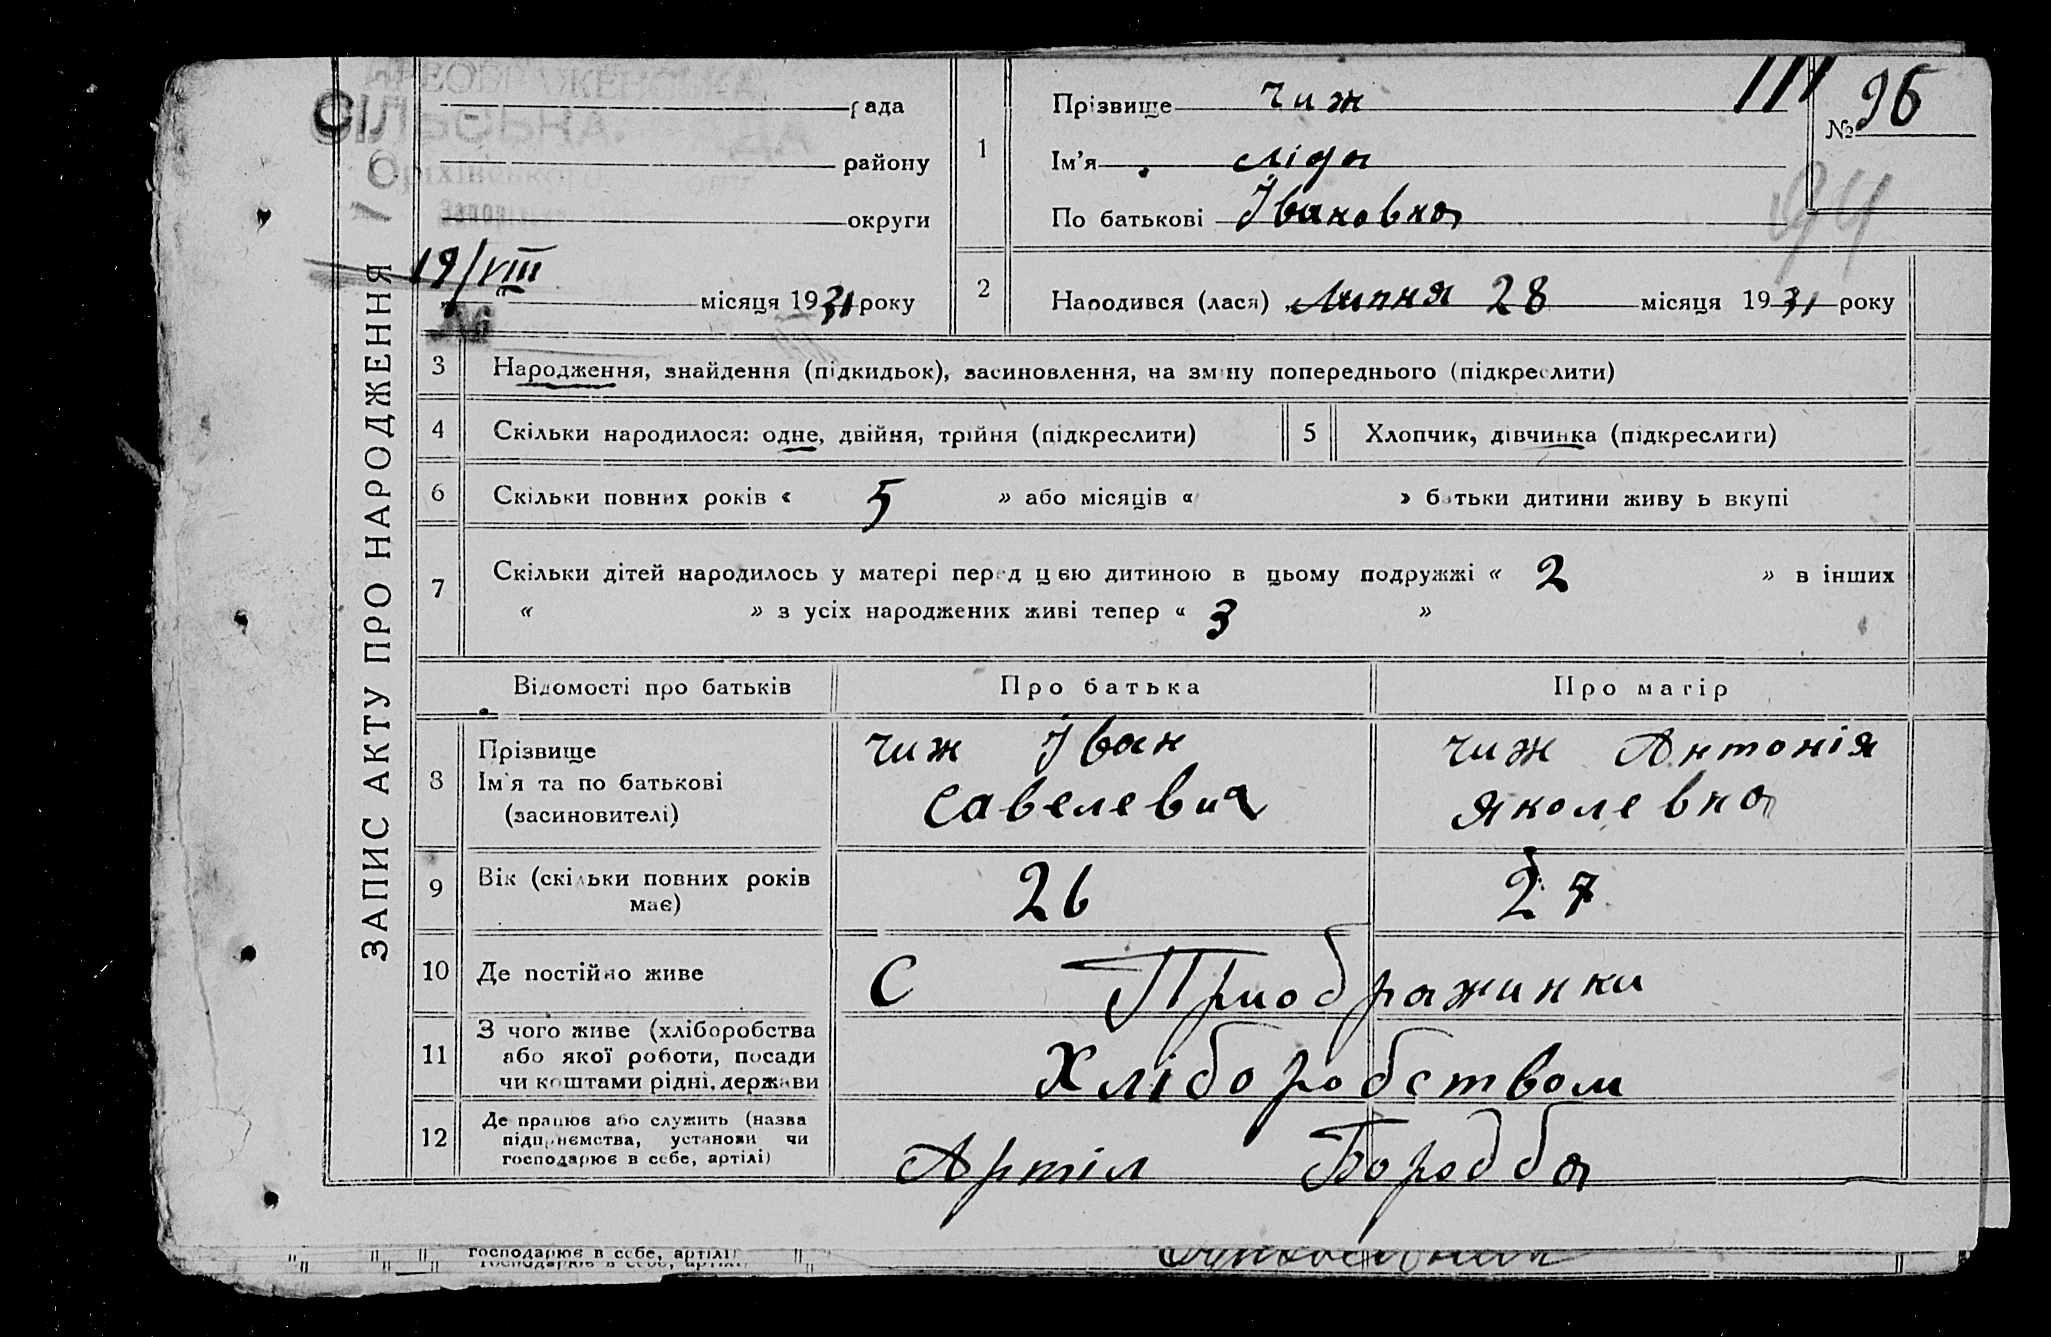 СІЛЬСЬКА РАДА
Оріхівського
рада
району
округи
19/VIII місяця 1931 року
ЗАПИС АКТУ ПРО НАРОДЖЕННЯ
1
Прізвище Чиж
Ім'я Ліда
По батькові Івановна
III
№ 96
94
2
Народився (лася) Липня 28 місяця 1931 року
3 Народження, знайдення (підкидьок), засиновлення, на зміну попереднього (підкреслити)
4 Скільки народилося: одне, двійня, трійня (підкреслити)
5 Хлопчик, дівчинка (підкреслити)
6 Скільки повних років « 5 » або місяців « » батьки дитини живуть вкупі
7 Скільки дітей народилось у матері перед цією дитиною в цьому подружжі « 2 » в інших
« » з усіх народжених живі тепер « 3 »
Відомості про батьків Про батька Про матір
8 Прізвище
Ім'я та по батькові
(засиновителі)
Чиж Іван
Савелевич
Чиж Антонія
Яколевна
9 Вік (скільки повних років
має)
26
27
10 Де постійно живе
С Приображинки
11 З чого живе (хліборобства
або якої роботи, посади
чи коштами рідні, держави
Хліборобством
12 Де працює або служить (назва
підприємства, установи чи
господарює в себе, артілі)
Артіл Бородба
господарює в себе, артілі)
господарює в себе, артілі)